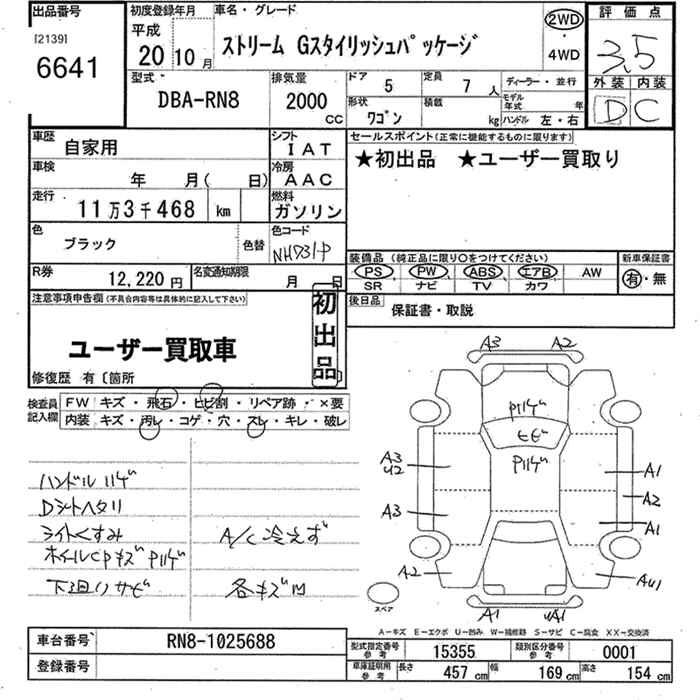 出品番号
[2139]
6641
初度登録年月
平成
20 10 月
車名・グレード
ストリーム Gスタイリッシュパッケージ
2WD
・
4WD
評価点
3.5
外装 内装
D C
型式
DBA-RN8
排気量
2000
CC
ドア
5
定員
7 人
ディーラー・並行
形状
ワゴン
積載
kg
モデル年式 年
ハンドル 左・右
車歴
自家用
シフト
IAT
車検
年 月( 日)
冷房
AAC
走行
11万3千468 km
燃料
ガソリン
色
ブラック
色替
色コード
NH731P
R券
12,220 円
名変通知期限
月 日
セールスポイント(正常に機能するものに限ります)
★初出品 ★ユーザー買取り
装備品(純正品に限り○をつけてください)
PS PW ABS エアB AW
SR ナビ TV カワ
新車保証書
有・無
後日品
保証書・取説
注意事項申告欄(不具合内容等は具体的に記入して下さい)
ユーザー買取車
初出品
修復歴 有〔箇所
検査員記入欄
FW キズ・飛石・ヒビ割・リペア跡・×要
内装 キズ・汚レ・コゲ・穴・スレ・キレ・破レ
ハンドルハゲ
Dシートヘタリ
ライトくすみ
ホイルCPキズPハゲ
下廻りサビ
A/C冷えず
各キズ凹
A3 A2
Pハゲ
ヒビ
Pハゲ
A3
U2
A3
A2
A1
A2
A1
AU1
A1 UA1
スペア
A-キズ E-エクボ U-凹み W-補修跡 S-サビ C-腐食 XX-交換済
車台番号
RN8-1025688
登録番号
型式指定番号
参考
15355
類別区分番号
参考
0001
車庫証明用
参考
長さ 457 cm 幅 169 cm 高さ 154 cm